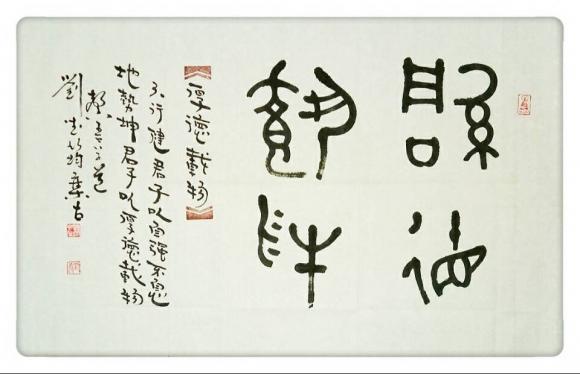 厚德
載物
厚德載物
天行健君子以自强不息
地勢坤君子以厚德載物
劉